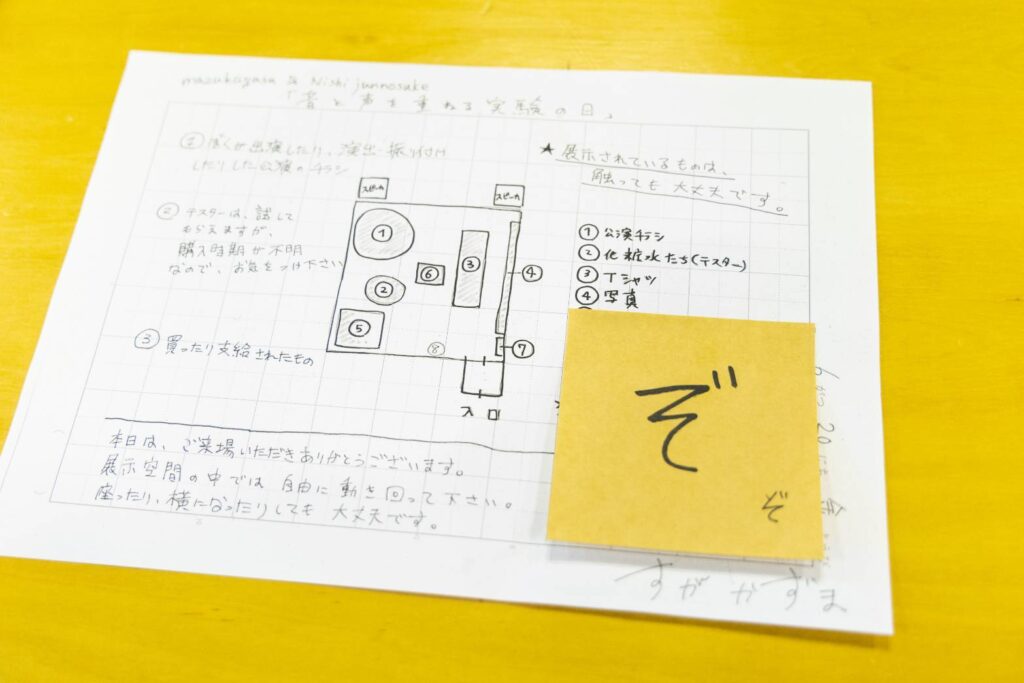 mazukazuza & Nishi junnosuke
「音と声を重ねる実験の日」
① ぼくが出演したり、演出・振り付け
したりした公演のチラシ
② テスターは、試して
もらえますが、
購入時期が不明
なので、お気をつけ下さい
③ 買ったり支給されたもの
スピーカ
スピーカ
①
②
③
④
⑤
⑥
⑦
⑧
入口
★ 展示されているものは、
触っても大丈夫です。
① 公演チラシ
② 化粧水たち(テスター)
③ Tシャツ
④ 写真
本日は、ご来場いただきありがとうございます。
展示空間の中では自由に動き回って下さい。
座ったり、横になったりしても大丈夫です。
ぞ
ぞ
すがかずま